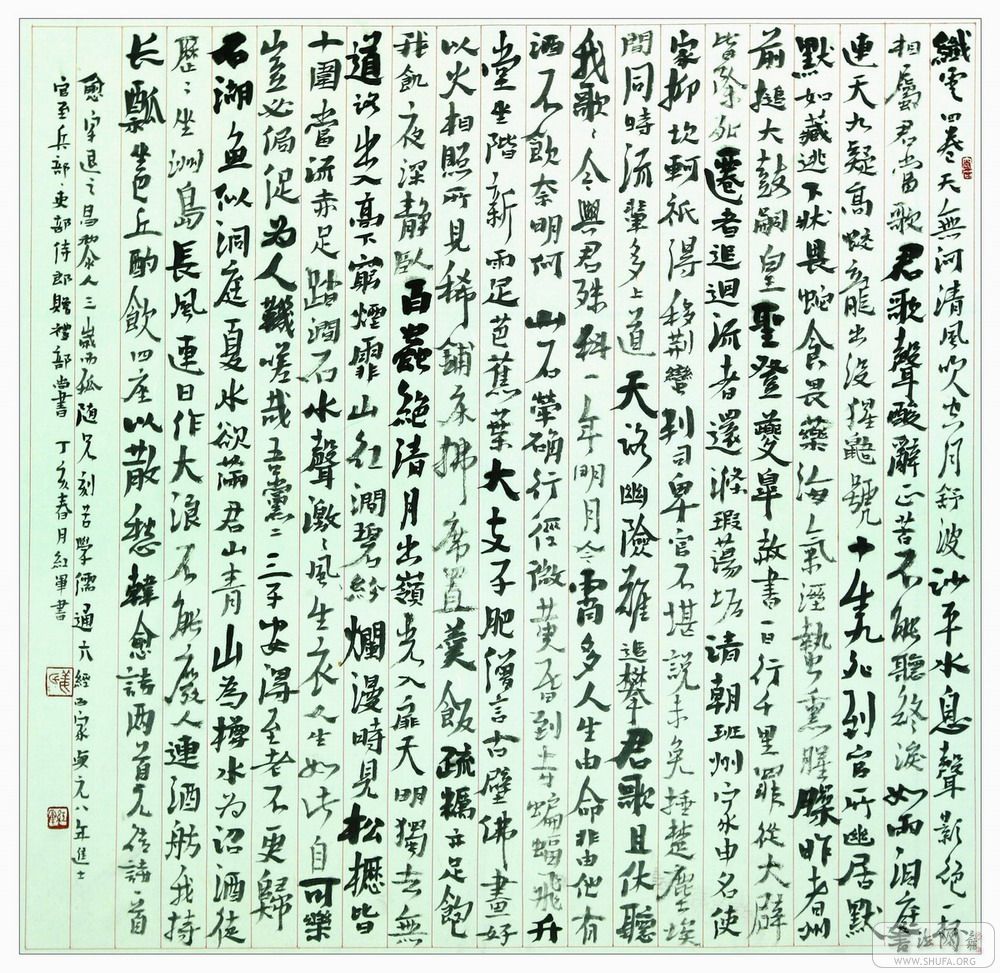 纖雲四卷天無河清風吹空月舒波沙平水息聲影絕一杯
相屬君當歌君歌聲酸辭正苦不能聽終淚如雨洞庭
連天九疑高蛟龍出沒猩鼯號十生九死到官所幽居默
默如藏逃下牀畏蛇食畏藥海氣溼蟄熏腥臊昨者州
前搥大鼓嗣皇聖登夔皋赦書一日行千里罪從大辟
皆除死遷者追迴流者還滌瑕蕩垢清朝班州家申名使
家抑坎軻祇得移荊蠻判司卑官不堪說未免捶楚塵埃
間同時流輩多上道天路幽險難追攀君歌且休聽
我歌〻今與君殊科一年明月今宵多人生由命非由他有
酒不飲奈明何 山石犖确行徑微黃昏到寺蝙蝠飛升
堂坐階新雨足芭蕉葉大支子肥僧言古壁佛畫好
以火相照所見稀鋪床拂席置羹飯疏糲亦足飽
我飢夜深靜臥百蟲絕清月出嶺光入扉天明獨去無
道路出入高下窮煙霏山紅澗碧紛爛漫時見松櫪皆
十圍當流赤足踏澗石水聲激〻風生衣人生如此自可樂
豈必侷促為人鞿嗟哉吾黨二三子安得至老不更歸
石湖盃似洞庭夏水欲滿君山青山為樽水為沼酒徒
歷〻坐洲島長風連日作大浪不能廢人運酒舫我持
长瓢坐巴丘酌飲四座以散愁 韓愈詩兩首元結詩一首
愈字退之昌黎人三歲而孤隨兄刻苦學儒通六經百家貞元八年進士
官至兵部吏部侍郎贈禮部尚書 丁亥春月紅軍書
書法網
WWW.SHUFA.ORG